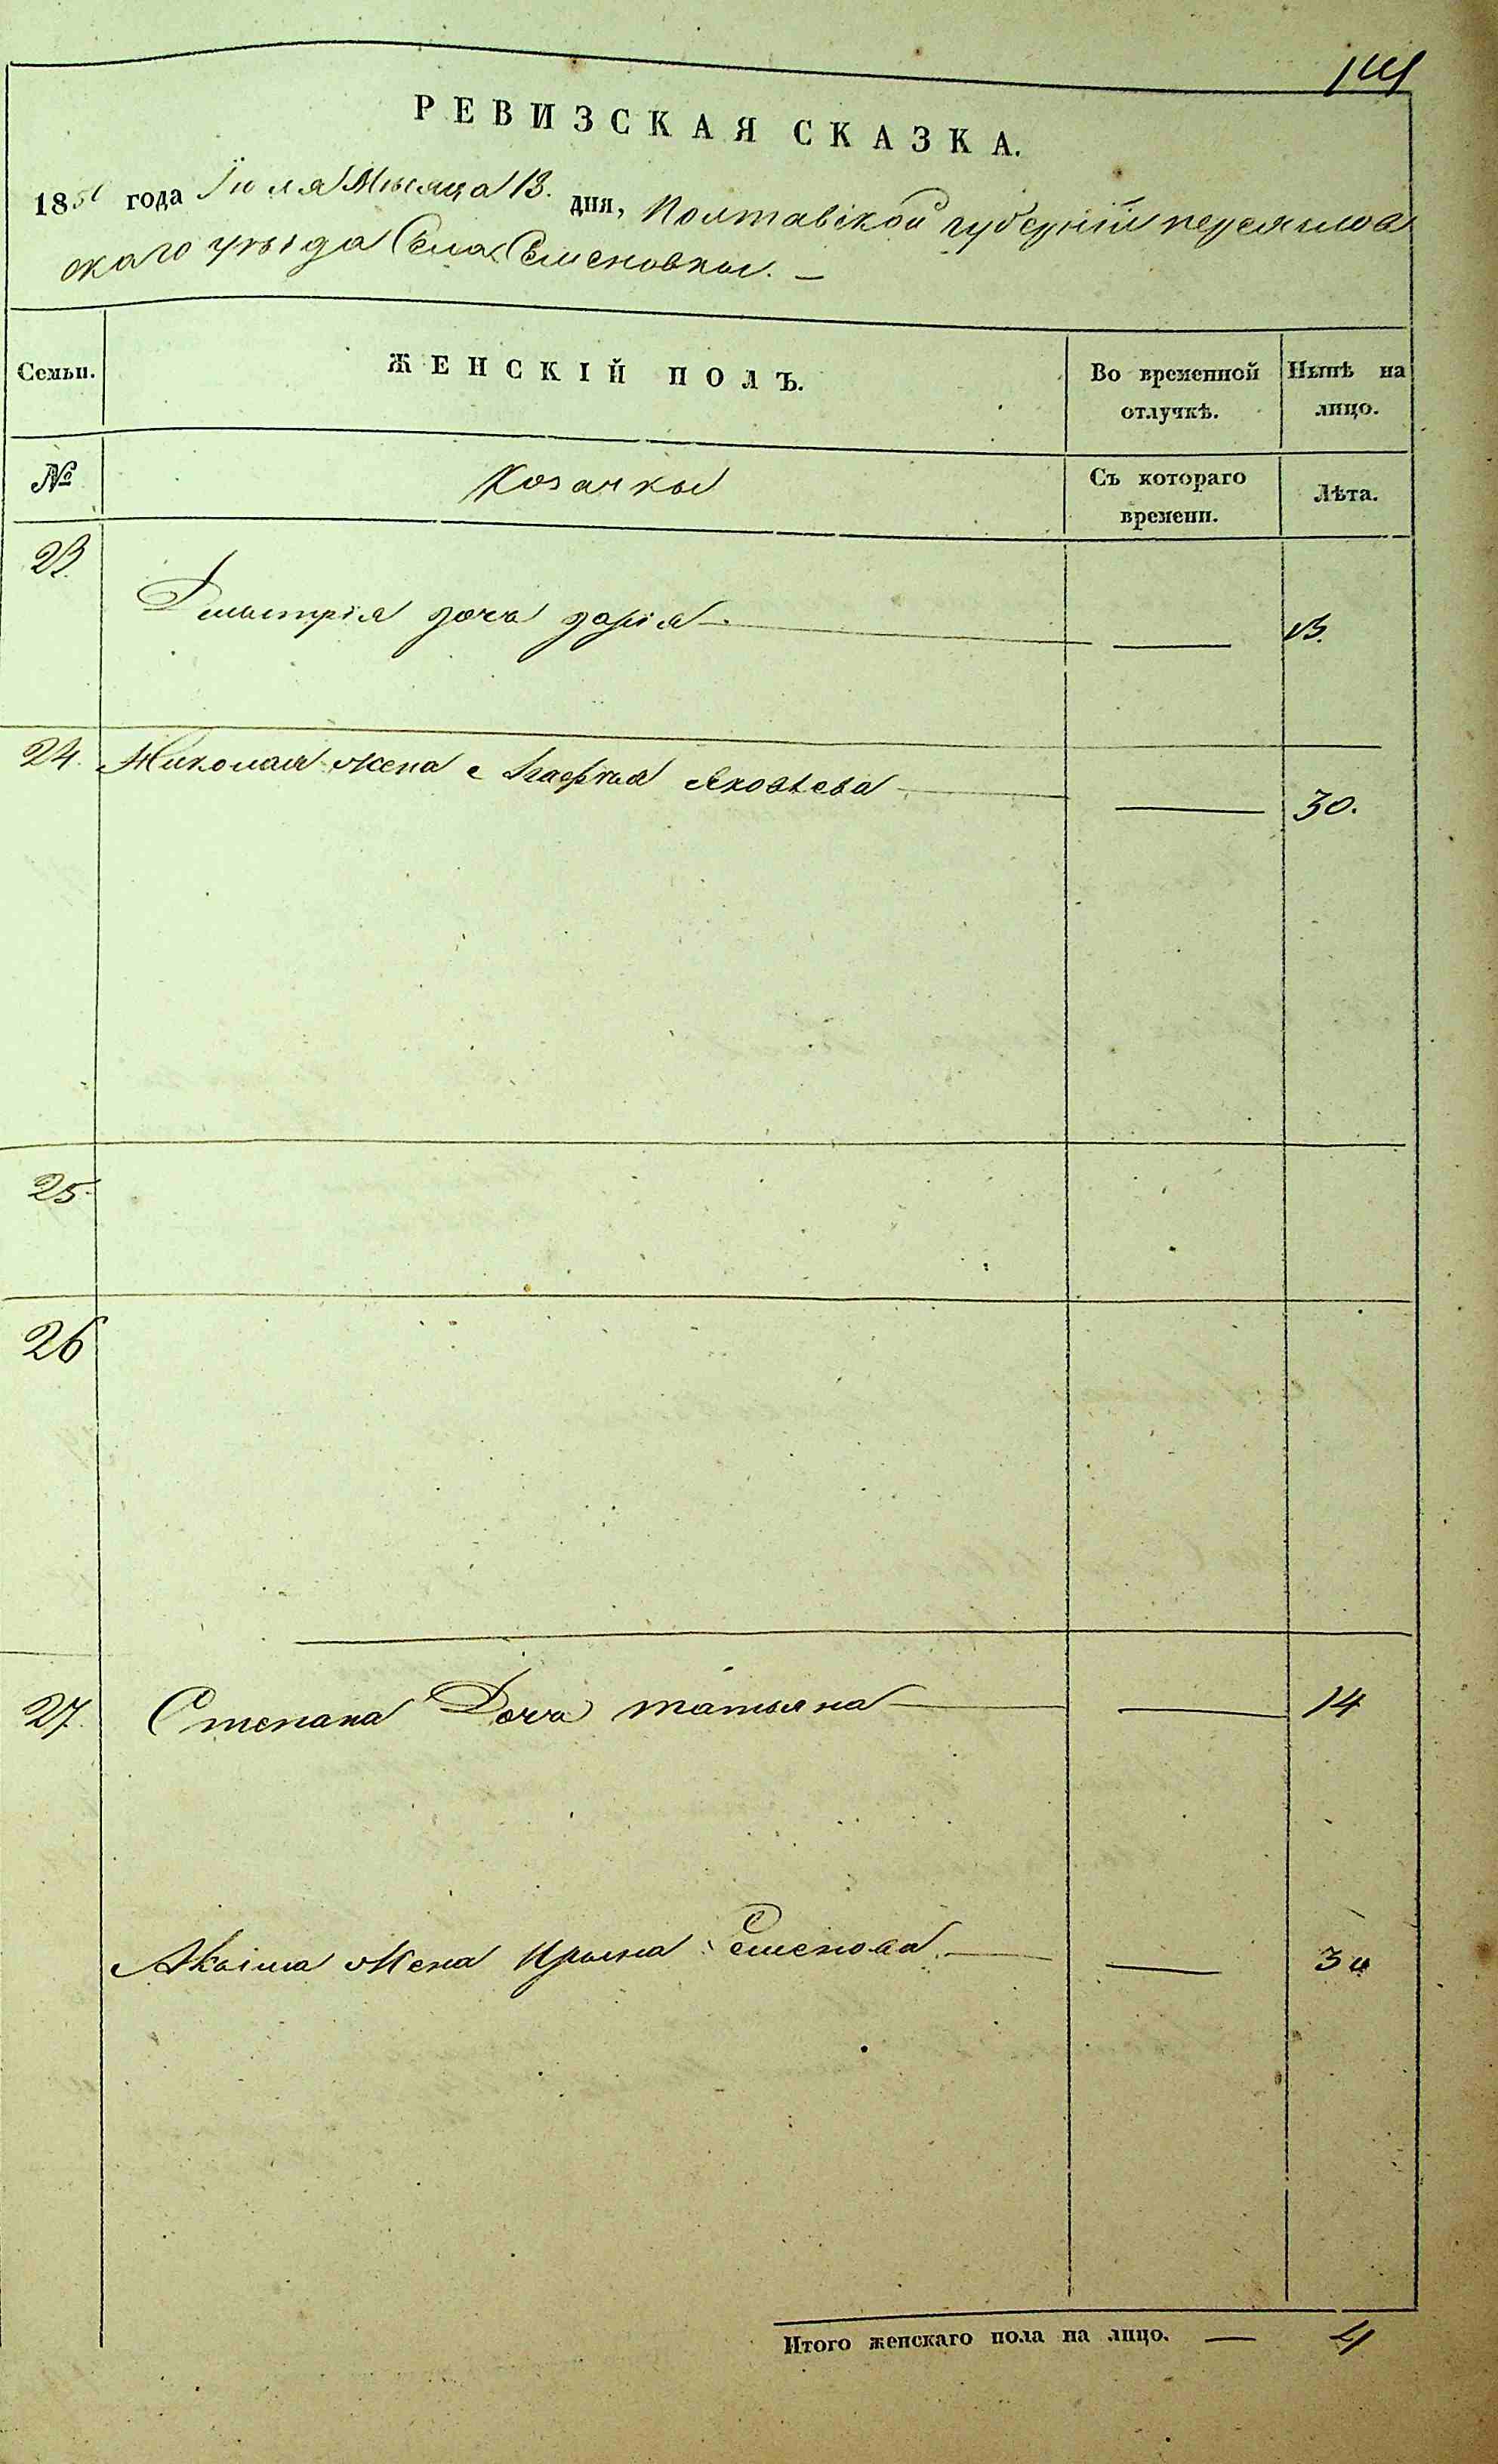 РЕВИЗСКАЯ СКАЗКА.
1851 года Іюля Мѣсяца 13. дня, Полтавской губерніи переяслов
скаго уѣзда Села Семеновки. —
Семьи. ЖЕНСКІЙ ПОЛЪ. Во временной отлучкѣ. Нынѣ на лицо.
№ Козачки Съ котораго времени. Лѣта.
23. Димитрія дочь дарія — — 13.
24. Николая жена Агафия Яковлева — — 30.
25.
26
27. Степана Дочь татьяна — — 14
Акима Жена Ирина Семенова — —
Итого женскаго пола на лицо. — 4